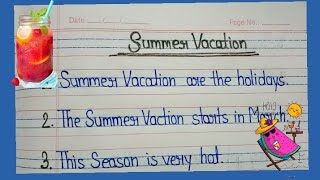 Date:
Page No.:
Summer Vacation
1. Summer Vacation are the holidays.
2. The Summer Vaction starts in March.
3. This Season is very hot.